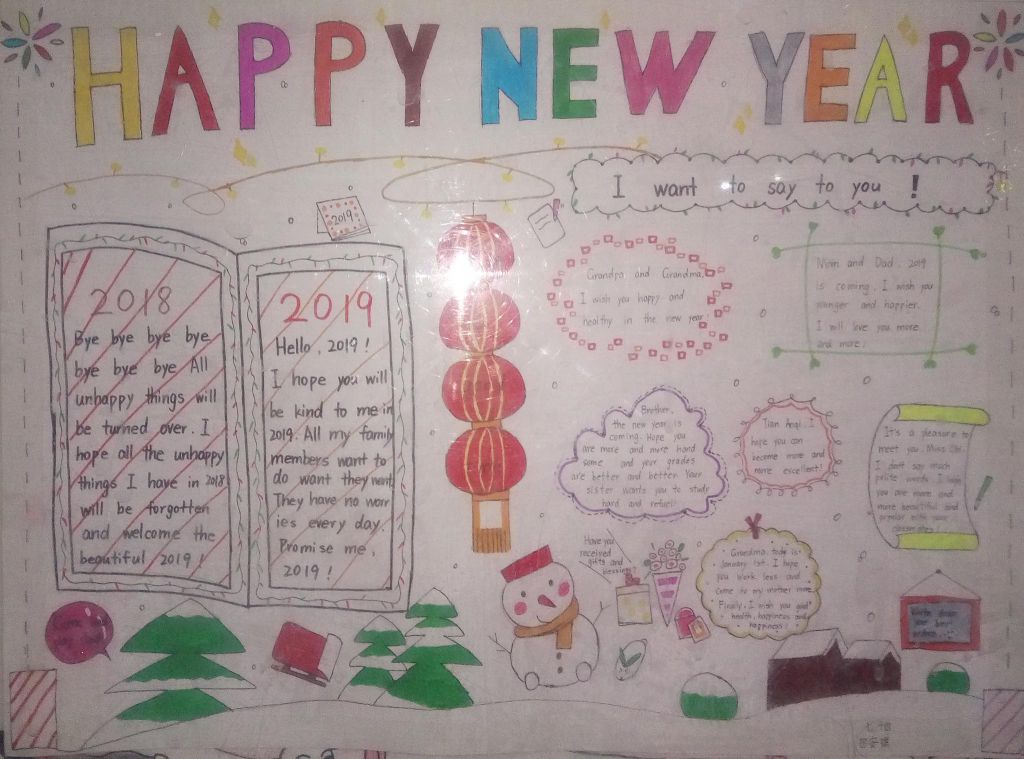 HAPPY NEW YEAR
I want to say to you !
2019
2018
Bye bye bye bye
bye bye bye All
unhappy things will
be turned over. I
hope all the unhappy
things I have in 2018
will be forgotten
and welcome the
beautiful 2019 !
2019
Hello, 2019 !
I hope you will
be kind to me in
2019. All my family
members want to
do want they want
They have no worr
ies every day.
Promise me,
2019 !
Grandpa and Grandma,
I wish you happy and
healthy in the new year.
Mom and Dad, 2019
is coming. I wish you
younger and happier.
I will love you more
and more.
Brother,
the new year is
coming. Hope you
are more and more hand
some and your grades
are better and better. Your
sister wants you to study
hard and
Tian Anqi, I
hope you can
become more and
more excellent!
It's a pleasure to
meet you, Miss
I don't say much
polite words. I hope
you are more and
more beautiful and
popular with your
classmates
Have you
received
gifts and
blessings?
Grandma, today is
January 1st. I hope
you work less and
come to my mother more.
Finally, I wish you good
health, happiness and
happiness !
Write down
your best
wishes